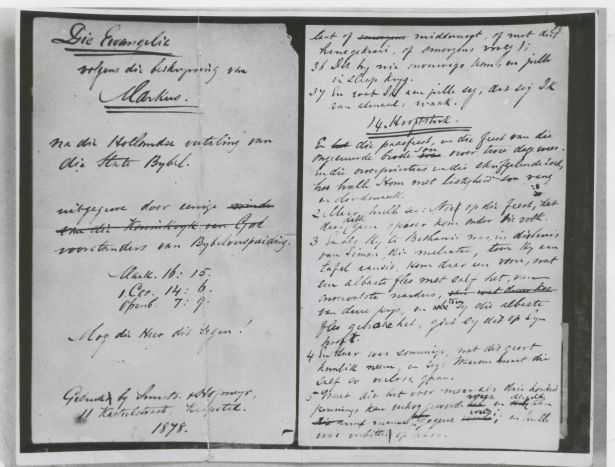 Die Evangelie
volgens die beskrywing van
Markus.
na die Hollandse vertaling van
die State Bybel.
uitgegewe door eenige
die Koninkryk van God
voorstanders van Bybelverspreiding.
Mark. 16: 15.
1 Cor. 14: 6.
Openb. 7: 9.
Mog die Heer dit segen!
Gedrukt by Smuts & Hofmeyr,
11 Kasteelstraat, Kaapstad.
1878.
laat of smorgens middernagt, of met die
hanegekraai, of smorgens vroeg);
36 Dat hy nie onverwags kom, en julle
in slaap kryg.
37 En wat Ik aan julle seg, dat seg Ik
van almaal: waak.
14. Hoofdstuk.
En die paasfeest, en die feest van die
ongesuurde brode sou over twee dage wees.
en die overpriesters en die skrifgeleerde soek,
hoe hulle Hom met listigheid sou vang
en doodmaak.
2 Maar hulle seg: Niet op die feest, dat
daar geen oproer kom onder die volk.
3 En als Hy te Bethanie was, in
van Simon, die melaatse, toen Hy aan
tafel aansit, kom daar een vrou, wat
een albaste fles met salf het, van
onvervalste nardus,
van dure prys, en sy die albaste
fles gebreek het, giet sy dit op Syn
4 En daar was sommige, wat dit
neem, en seg: Waarom word die
5 Want dit het voor meer als drie honderd
pennings kan verkog geword
en hulle
was verbitterd op haar.